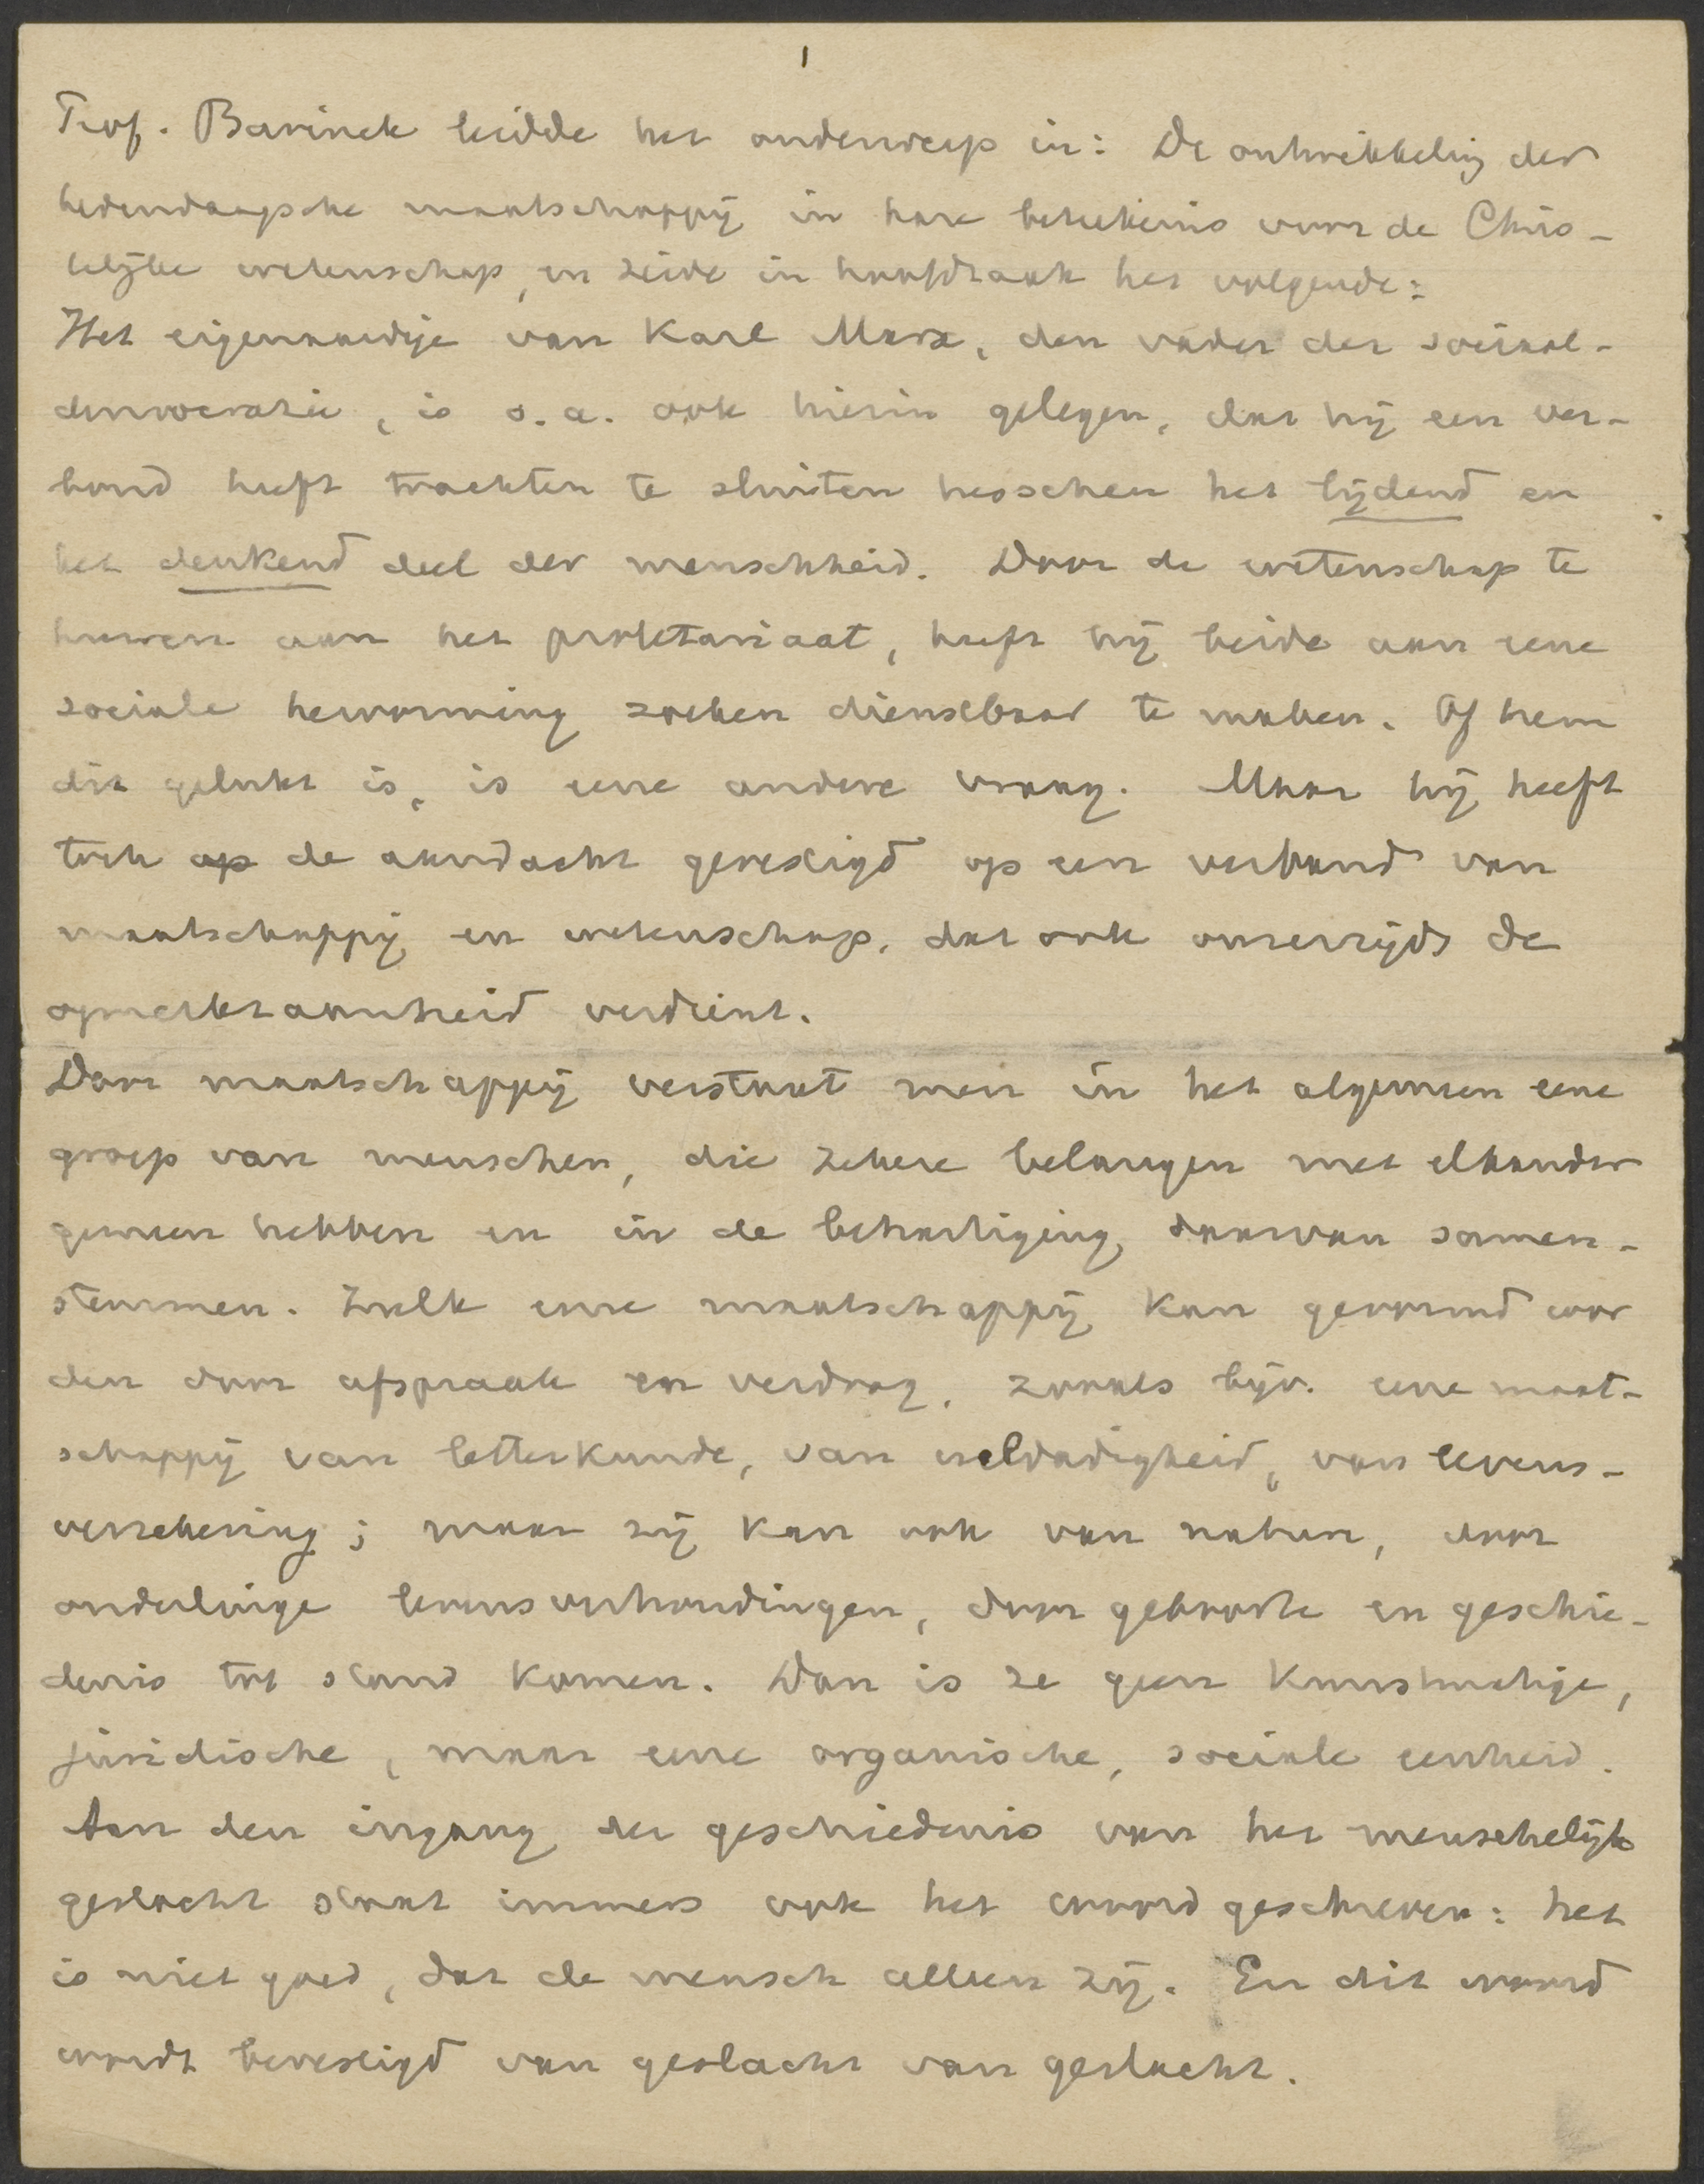 1
Prof. Bavinck leidde het onderwerp in: De ontwikkeling der
hedendaagsche maatschappij in hare beteekenis voor de Chris-
telijke wetenschap, en zeide in hoofdzaak het volgende:
Het eigenaardige van Karl Marx, den vader der sociaal-
democratie, is o.a. ook hierin gelegen, dat hij een ver-
bond heeft trachten te sluiten tusschen het lijdend en
het denkend deel der menschheid. Door de wetenschap te
huwen aan het proletariaat, heeft hij beide aan eene
sociale hervorming zoeken dienstbaar te maken. Of hem
dit gelukt is, is eene andere vraag. Maar hij heeft
toch op de aandacht gevestigd op een verband van
maatschappij en wetenschap, dat ook onzerzijds de
opmerkzaamheid verdient.
Door maatschappij verstaat men in het algemeen eene
groep van menschen, die zekere belangen met elkander
gemeen hebben en in de behartiging daarvan samen-
stemmen. Zulk eene maatschappij kan gevormd wor
den door afspraak en verdrag, zooals bijv. eene maat-
schappij van letterkunde, van weldadigheid, van levens-
verzekering; maar zij kan ook van nature, door
onderlinge levensverhoudingen, door geboorte en geschie-
denis tot stand komen. Dan is ze geen kunstmatige,
juridische, maar eene organische, sociale eenheid.
Aan den ingang der geschiedenis van het menschelijk
geslacht staat immers ook het woord geschreven: het
is niet goed, dat de mensch alleen zij. En dit woord
wordt bevestigd van geslacht van geslacht.